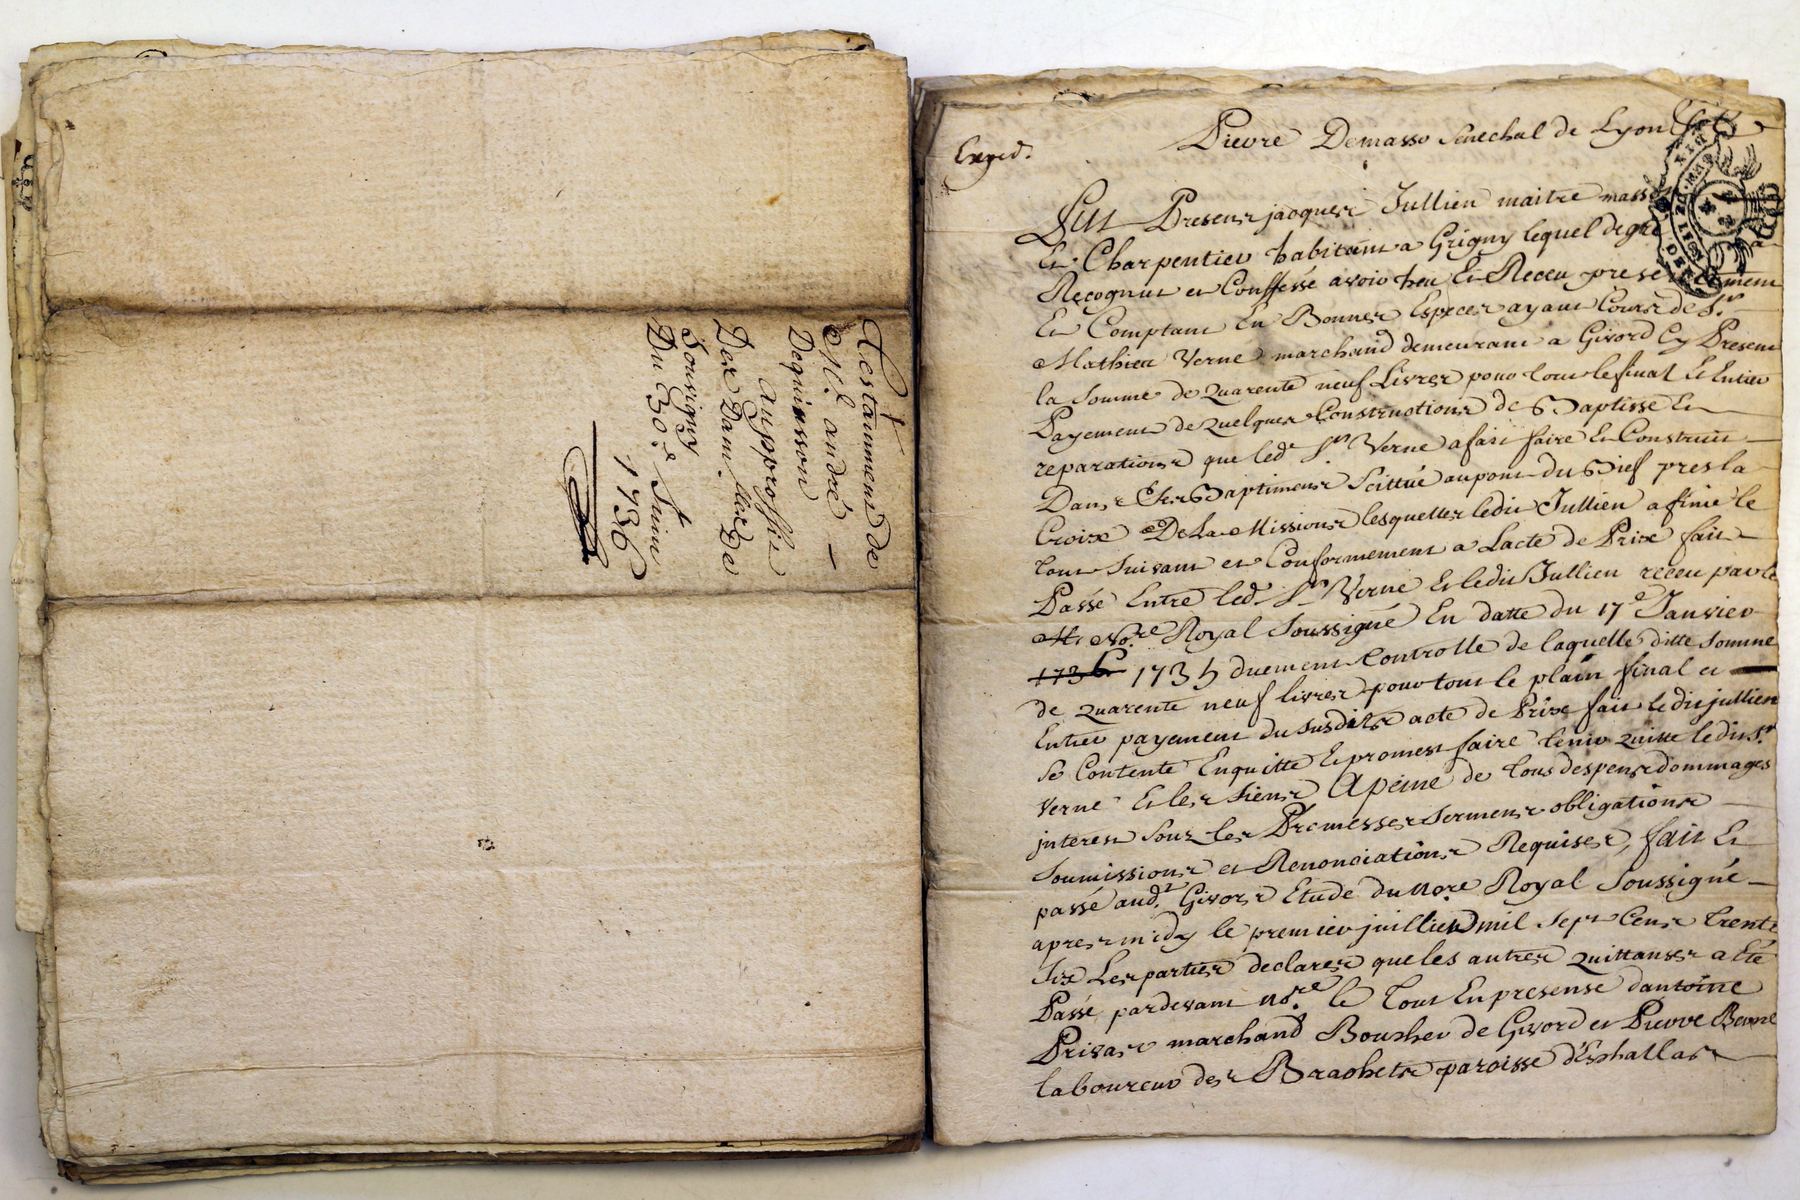 Testamment de
Mr. andré —
Dequinsson
aupproffit
Des Dam. lles De
Sousigny
Du 30e Juin
1736
Exped.
Pierre Demasso Senechal de Lyon
Fut Present jacques Jullien maitre masson
Et Charpentier habitant a Grigny lequel de gre
Recognut et Conffessé avoir heu Et Receu presentement
Et Comptant En Bonnes Especes ayant Cours de Sr.
Mathieu Verne marchand demeurant a Givord Cy Present
la Somme de Quarente neuf Livres pour tout le final Et Entier
Payement de quelques Constructions de Baptisse Et
reparations que led. Sr. Verne a fait faire Et Construit
Dans Ses Baptiments Scittué au pont du Bief pres la
Croix De La Mission lesquelles ledit Jullien a finie le
tout Suivant et Conformement a Lacte de Prix fait
Passé Entre led. Sr. Verne Et ledit Jullien receu par le
No.re Royal Soussigné En datte du 17e Janvier
1736 1735 duement Controlle de laquelle ditte Somme
de Quarente neuf livres pour tout le plain final et
Entier payement du Susdits acte de Prix fait ledit jullien
Se Contente Enquitte Et promest faire tenir Quitte ledit Sr.
Verne Et les Siens Apeine de tous despens dommages
interest Soux les Promesses Serments obligations
Soumissions et Renonciations Requises, fait Et
passé aud.t Givors Etude du No.re Royal Soussigné
apres midy le premier juillied mil Sept Cens trente
Six Les parties declares que les autres Quittanses a Eté
Passé pardevant No.re le Tout En presense dantoine
Privas marchand Boucher de Givord et Pierre Bonne
laboureur des Brachets paroisse d'Eschallas